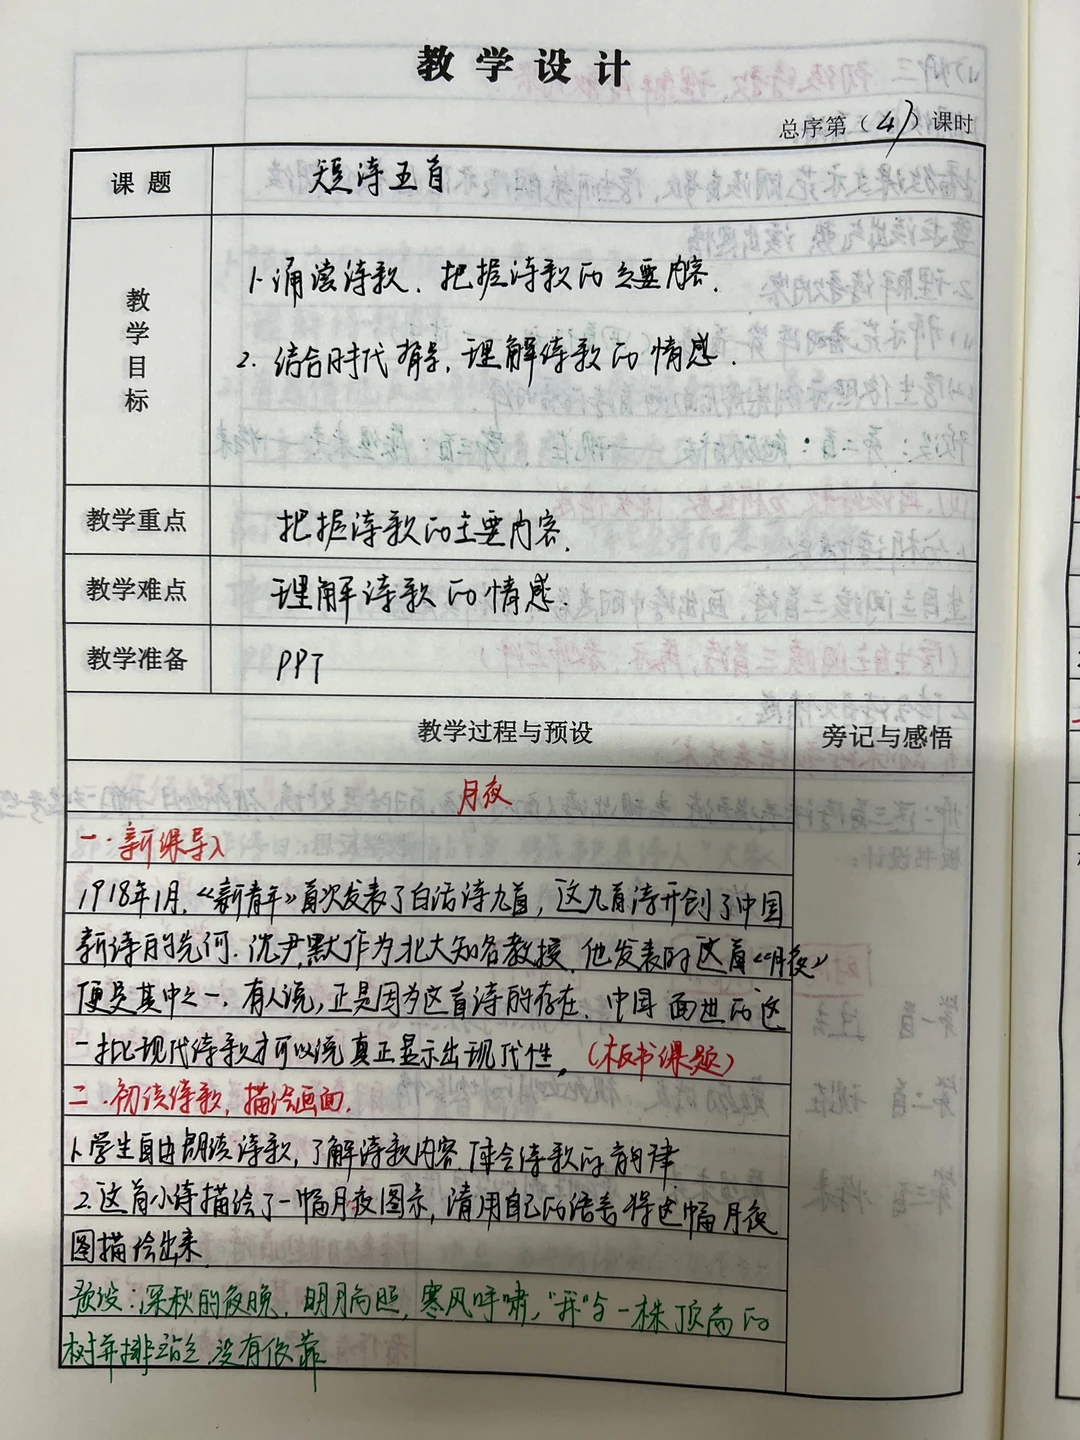 教学设计
总序第（4）课时
课题 短诗五首
教学目标
1.诵读诗歌、把握诗歌的主要内容.
2.结合时代背景,理解诗歌的情感.
教学重点 把握诗歌的主要内容.
教学难点 理解诗歌的情感.
教学准备 PPT
教学过程与预设 旁记与感悟
月夜
一.新课导入
1918年1月,《新青年》首次发表了白话诗九首,这九首诗开创了中国
新诗的先河.沈尹默作为北大知名教授,他发表的这首《月夜》
便是其中之一.有人说,正是因为这首诗的存在、中国面世的这
一批现代诗歌才可以说真正显示出现代性。(板书课题)
二.初读诗歌,描绘画面.
1.学生自由朗读诗歌,了解诗歌内容.体会诗歌的韵律.
2.这首小诗描绘了一幅月夜图示,请用自己的语言将这幅月夜
图描绘出来.
预设:深秋的夜晚,明月高照,寒风呼啸,"我"与一株顶高的
树并排站立,没有依靠